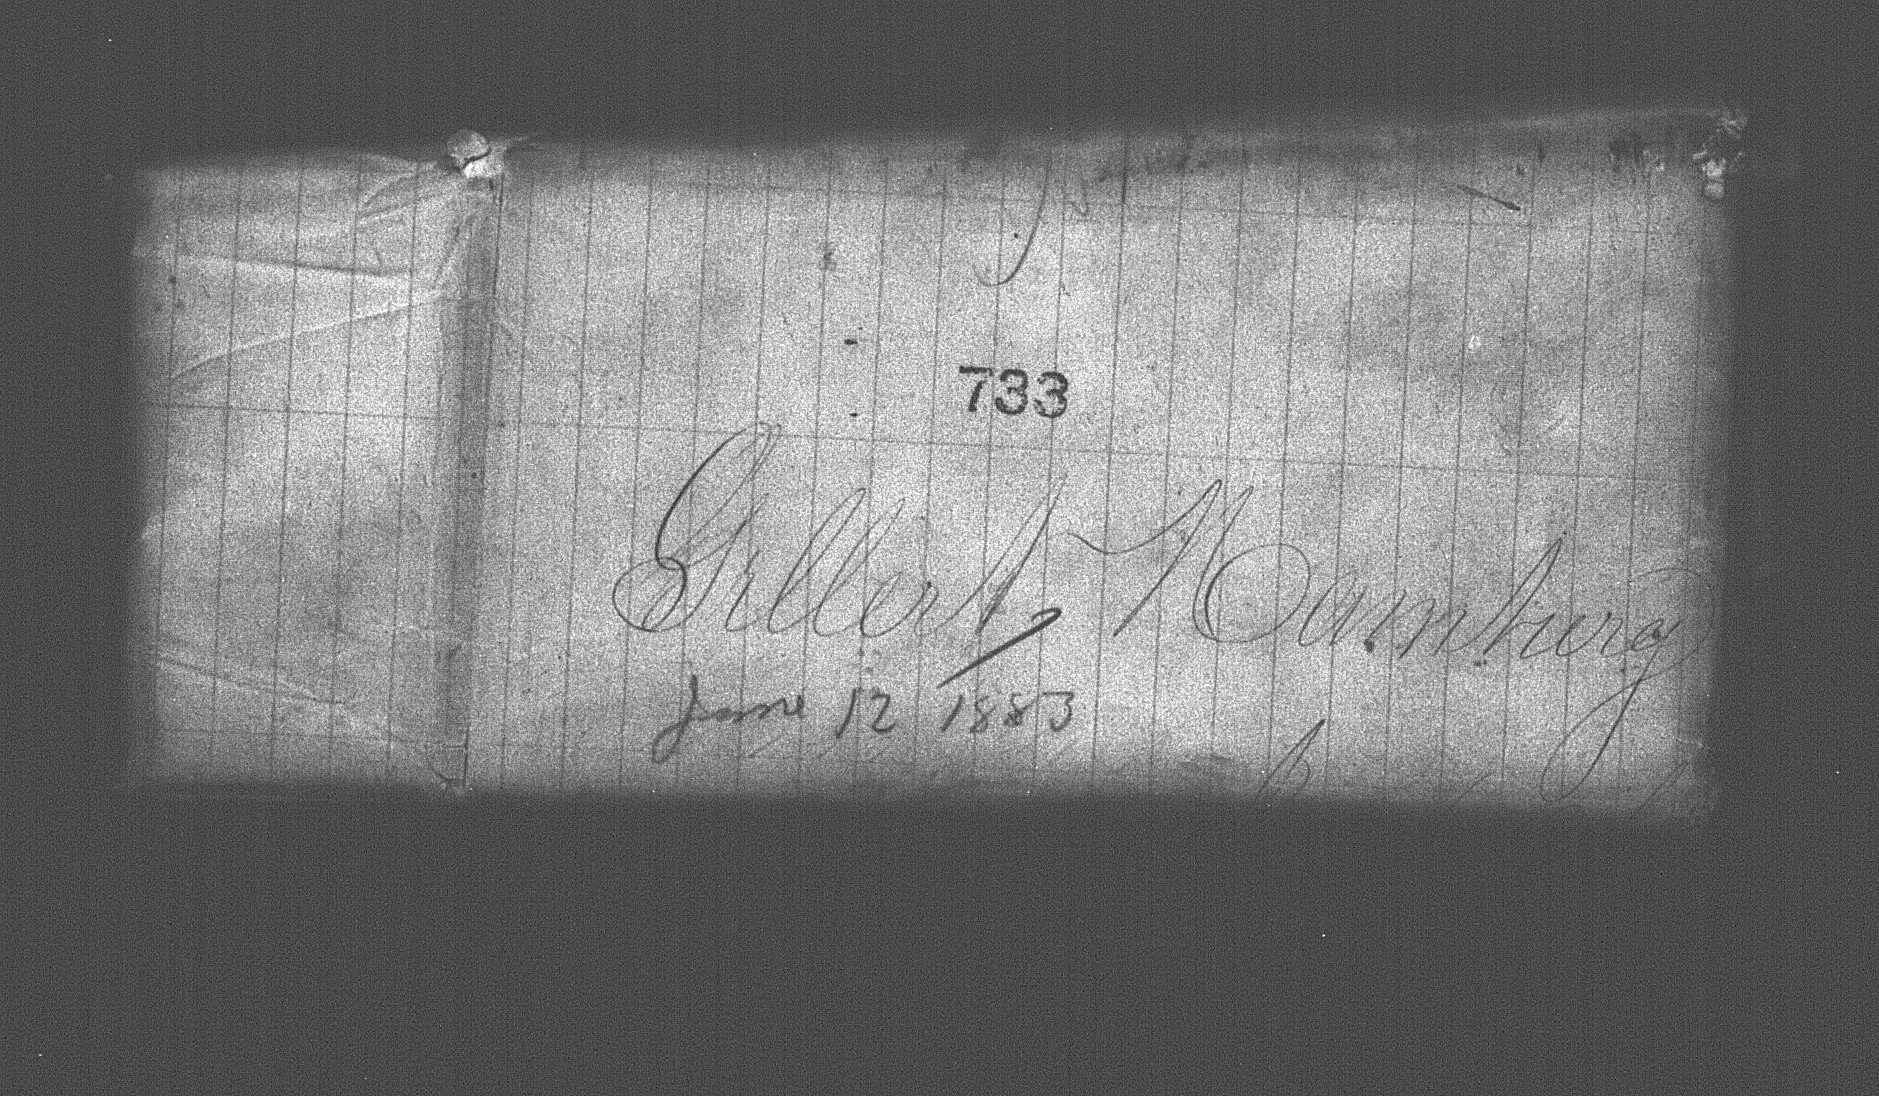 733
Gilbert Hamburg
June 12 1883